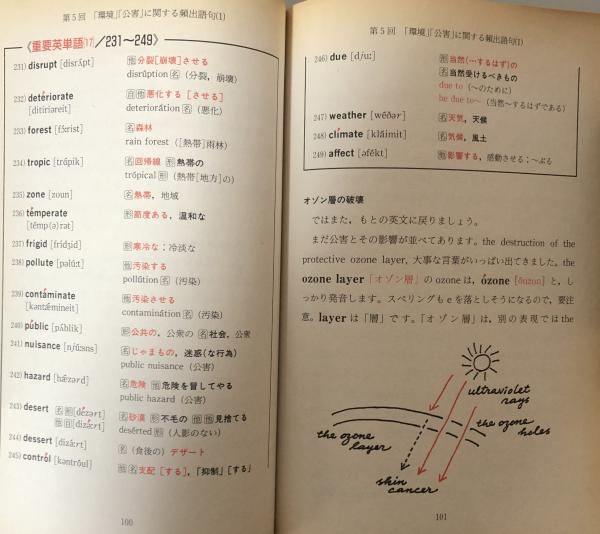 第5回 「環境」「公害」に関する頻出語句(1)
《重要英単語[17]/231~249》
231) disrupt [disrʌ́pt] 他分裂[崩壊]させる
disrúption 名 (分裂, 崩壊)
232) detériorate 自他悪化する [させる]
[ditíriəreit] deteriorátion 名 (悪化)
233) forest [fɔ́:rist] 名森林
rain forest ([熱帯]雨林)
234) tropic [trápik] 名回帰線 形熱帯の
trópical 形 (熱帯[地方]の)
235) zone [zoun] 名熱帯, 地域
236) témperate 形節度ある, 温和な
[témp(ə)rət]
237) frigid [frídʒid] 形寒冷な;冷淡な
238) pollute [pəlú:t] 他汚染する
pollútion 名 (汚染)
239) contáminate 他汚染させる
[kəntǽmineit] contaminátion 名 (汚染)
240) públic [pʌ́blik] 形公共の, 公衆の 名社会, 公衆
241) nuisance [njú:sns] 名じゃまもの, 迷惑(な行為)
public nuisance (公害)
242) hazard [hǽzərd] 名危険 他危険を冒してやる
public hazard (公害)
243) desert 名形[dézərt] 名砂漠 形不毛の 他他見捨てる
他自[dizə́:rt] desérted 形 (人影のない)
244) dessert [dizə́:rt] 名 (食後の) デザート
245) contról [kəntróul] 他名支配 [する],「抑制」[する]
100
第5回 「環境」「公害」に関する頻出語句(1)
246) due [dju:] 形当然(…するはず)の
名当然受けるべきもの
due to (~のために)
be due to~ (当然~するはずである)
247) weather [wéðər] 名天気, 天候
248) climate [kláimit] 名気候, 風土
249) affect [əfékt] 他影響する, 感動させる;~ぶる
オゾン層の破壊
ではまた, もとの英文に戻りましょう。
まだ公害とその影響が並べてあります。the destruction of the
protective ozone layer, 大事な言葉がいっぱい出てきました。the
ozone layer「オゾン層」のozoneは, ózone [óuzoun] と, し
っかり発音します。スペリングもeを落としそうになるので, 要注
意。layerは「層」です。「オゾン層」は, 別の表現ではthe
ultraviolet
rays
the ozone
layer
the ozone
holes
skin
cancer
101